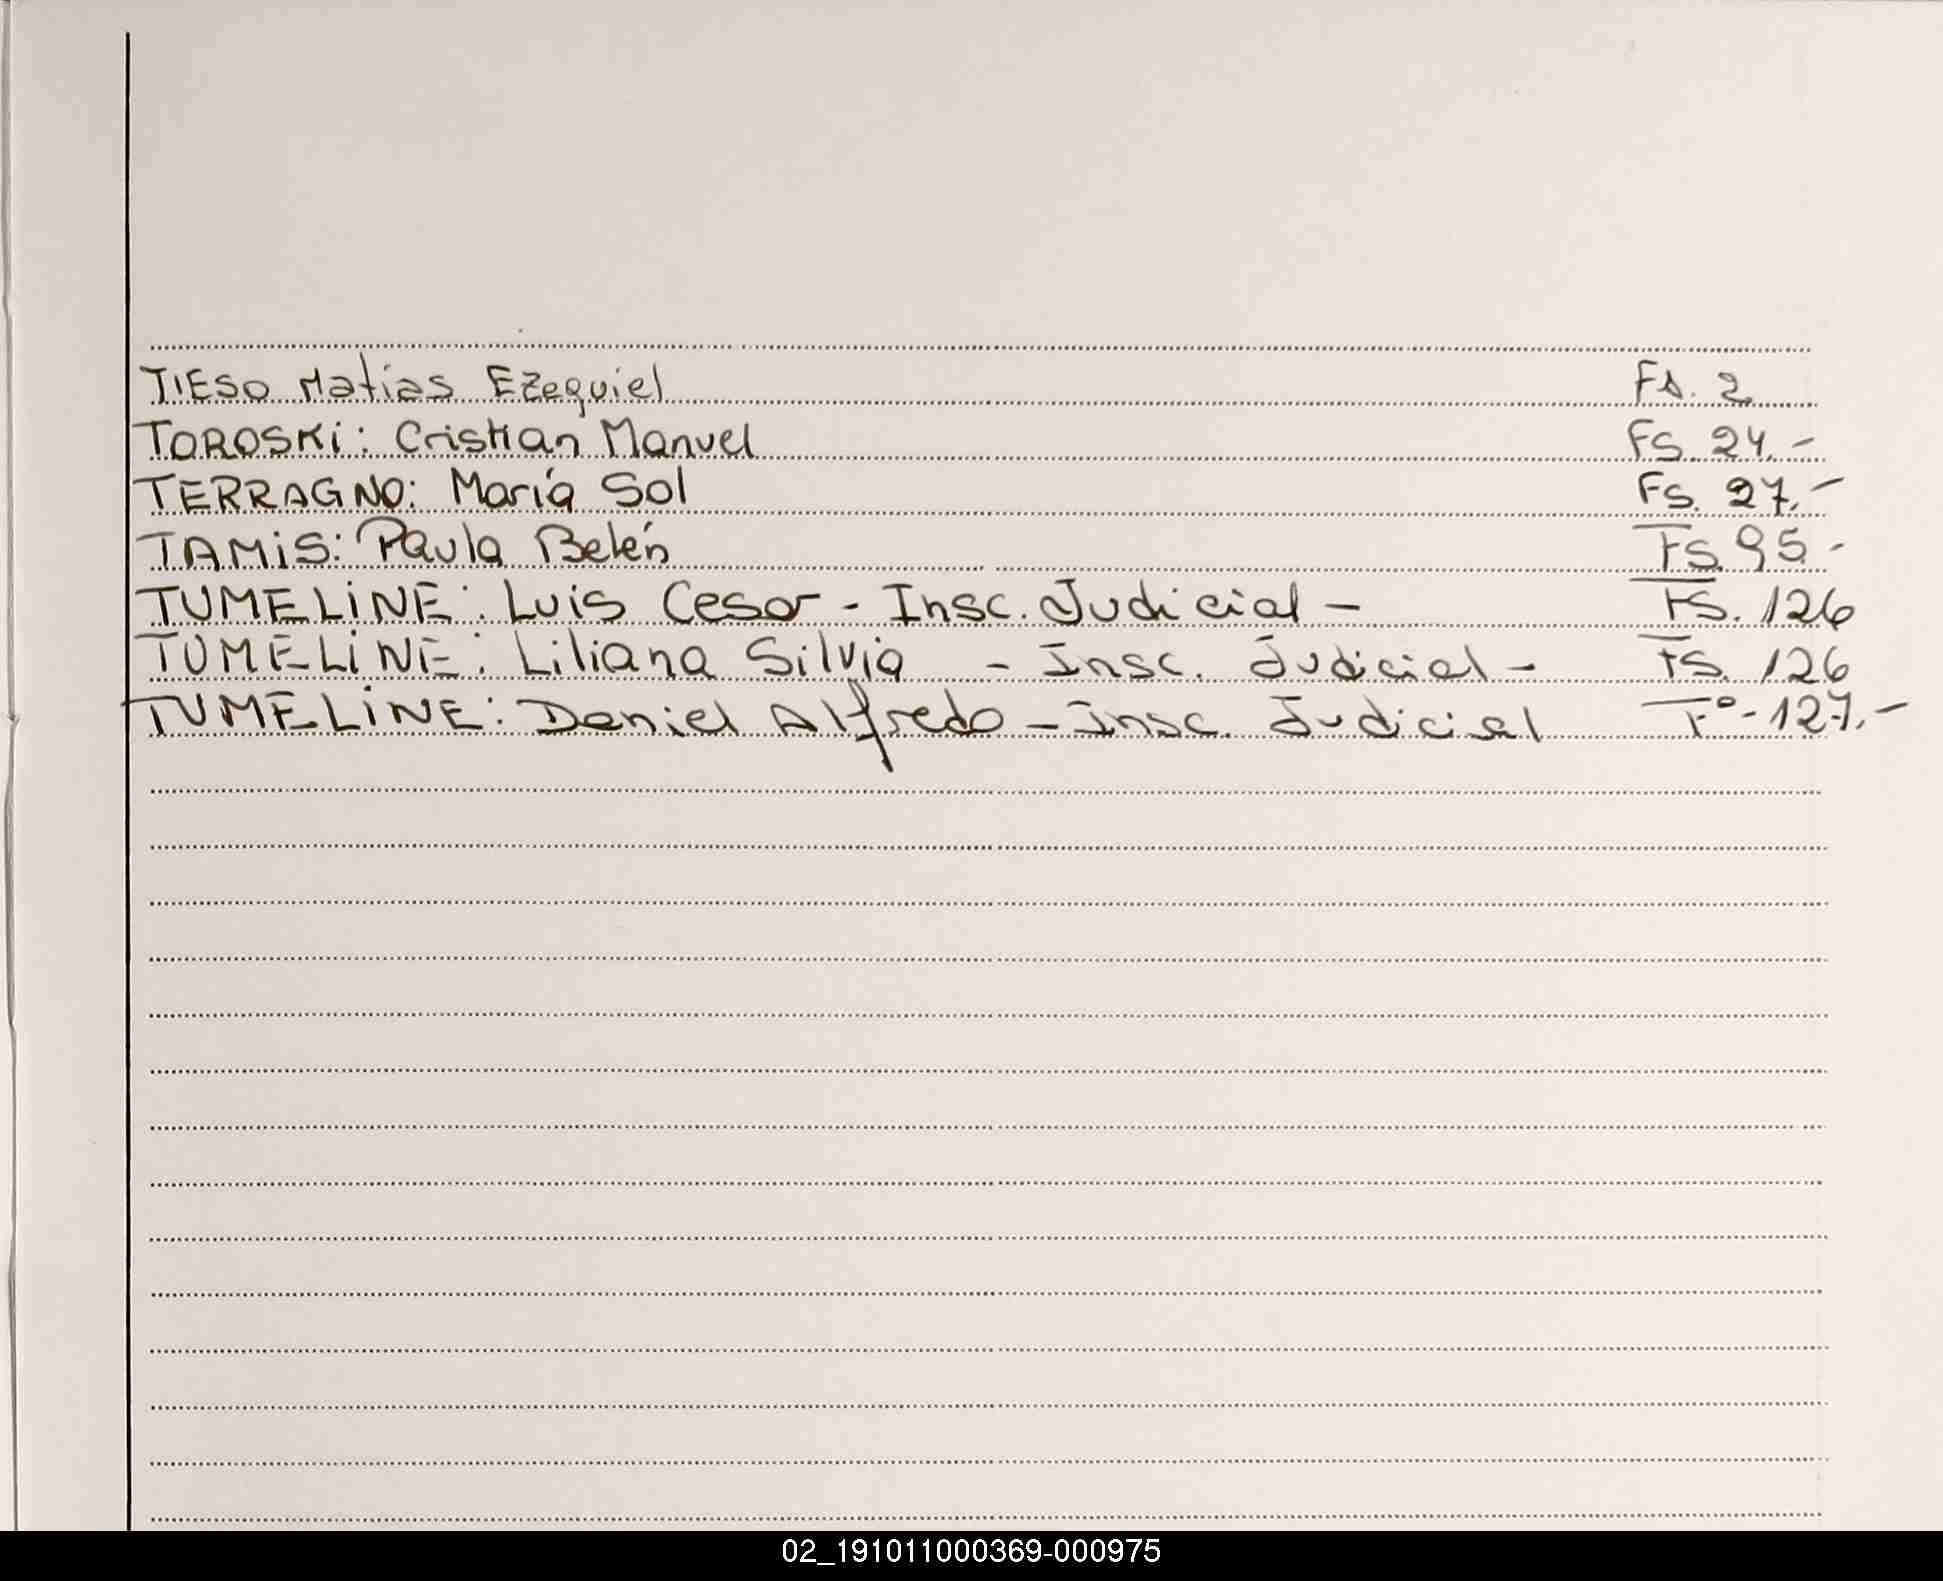 TIESO Matias Ezequiel Fs. 2
TOROSKi: Cristian Manuel Fs. 24.-
TERRAGNO: María Sol Fs. 27.-
TAMiS: Paula Belén Fs. 95.-
TUMELiNE: Luis Cesar - Insc. Judicial - Fs. 126
TUMELiNE: Liliana Silvia - Insc. Judicial - Fs. 126
TUMELiNE: Daniel Alfredo - Insc. Judicial Fº - 127.-
02_191011000369-000975